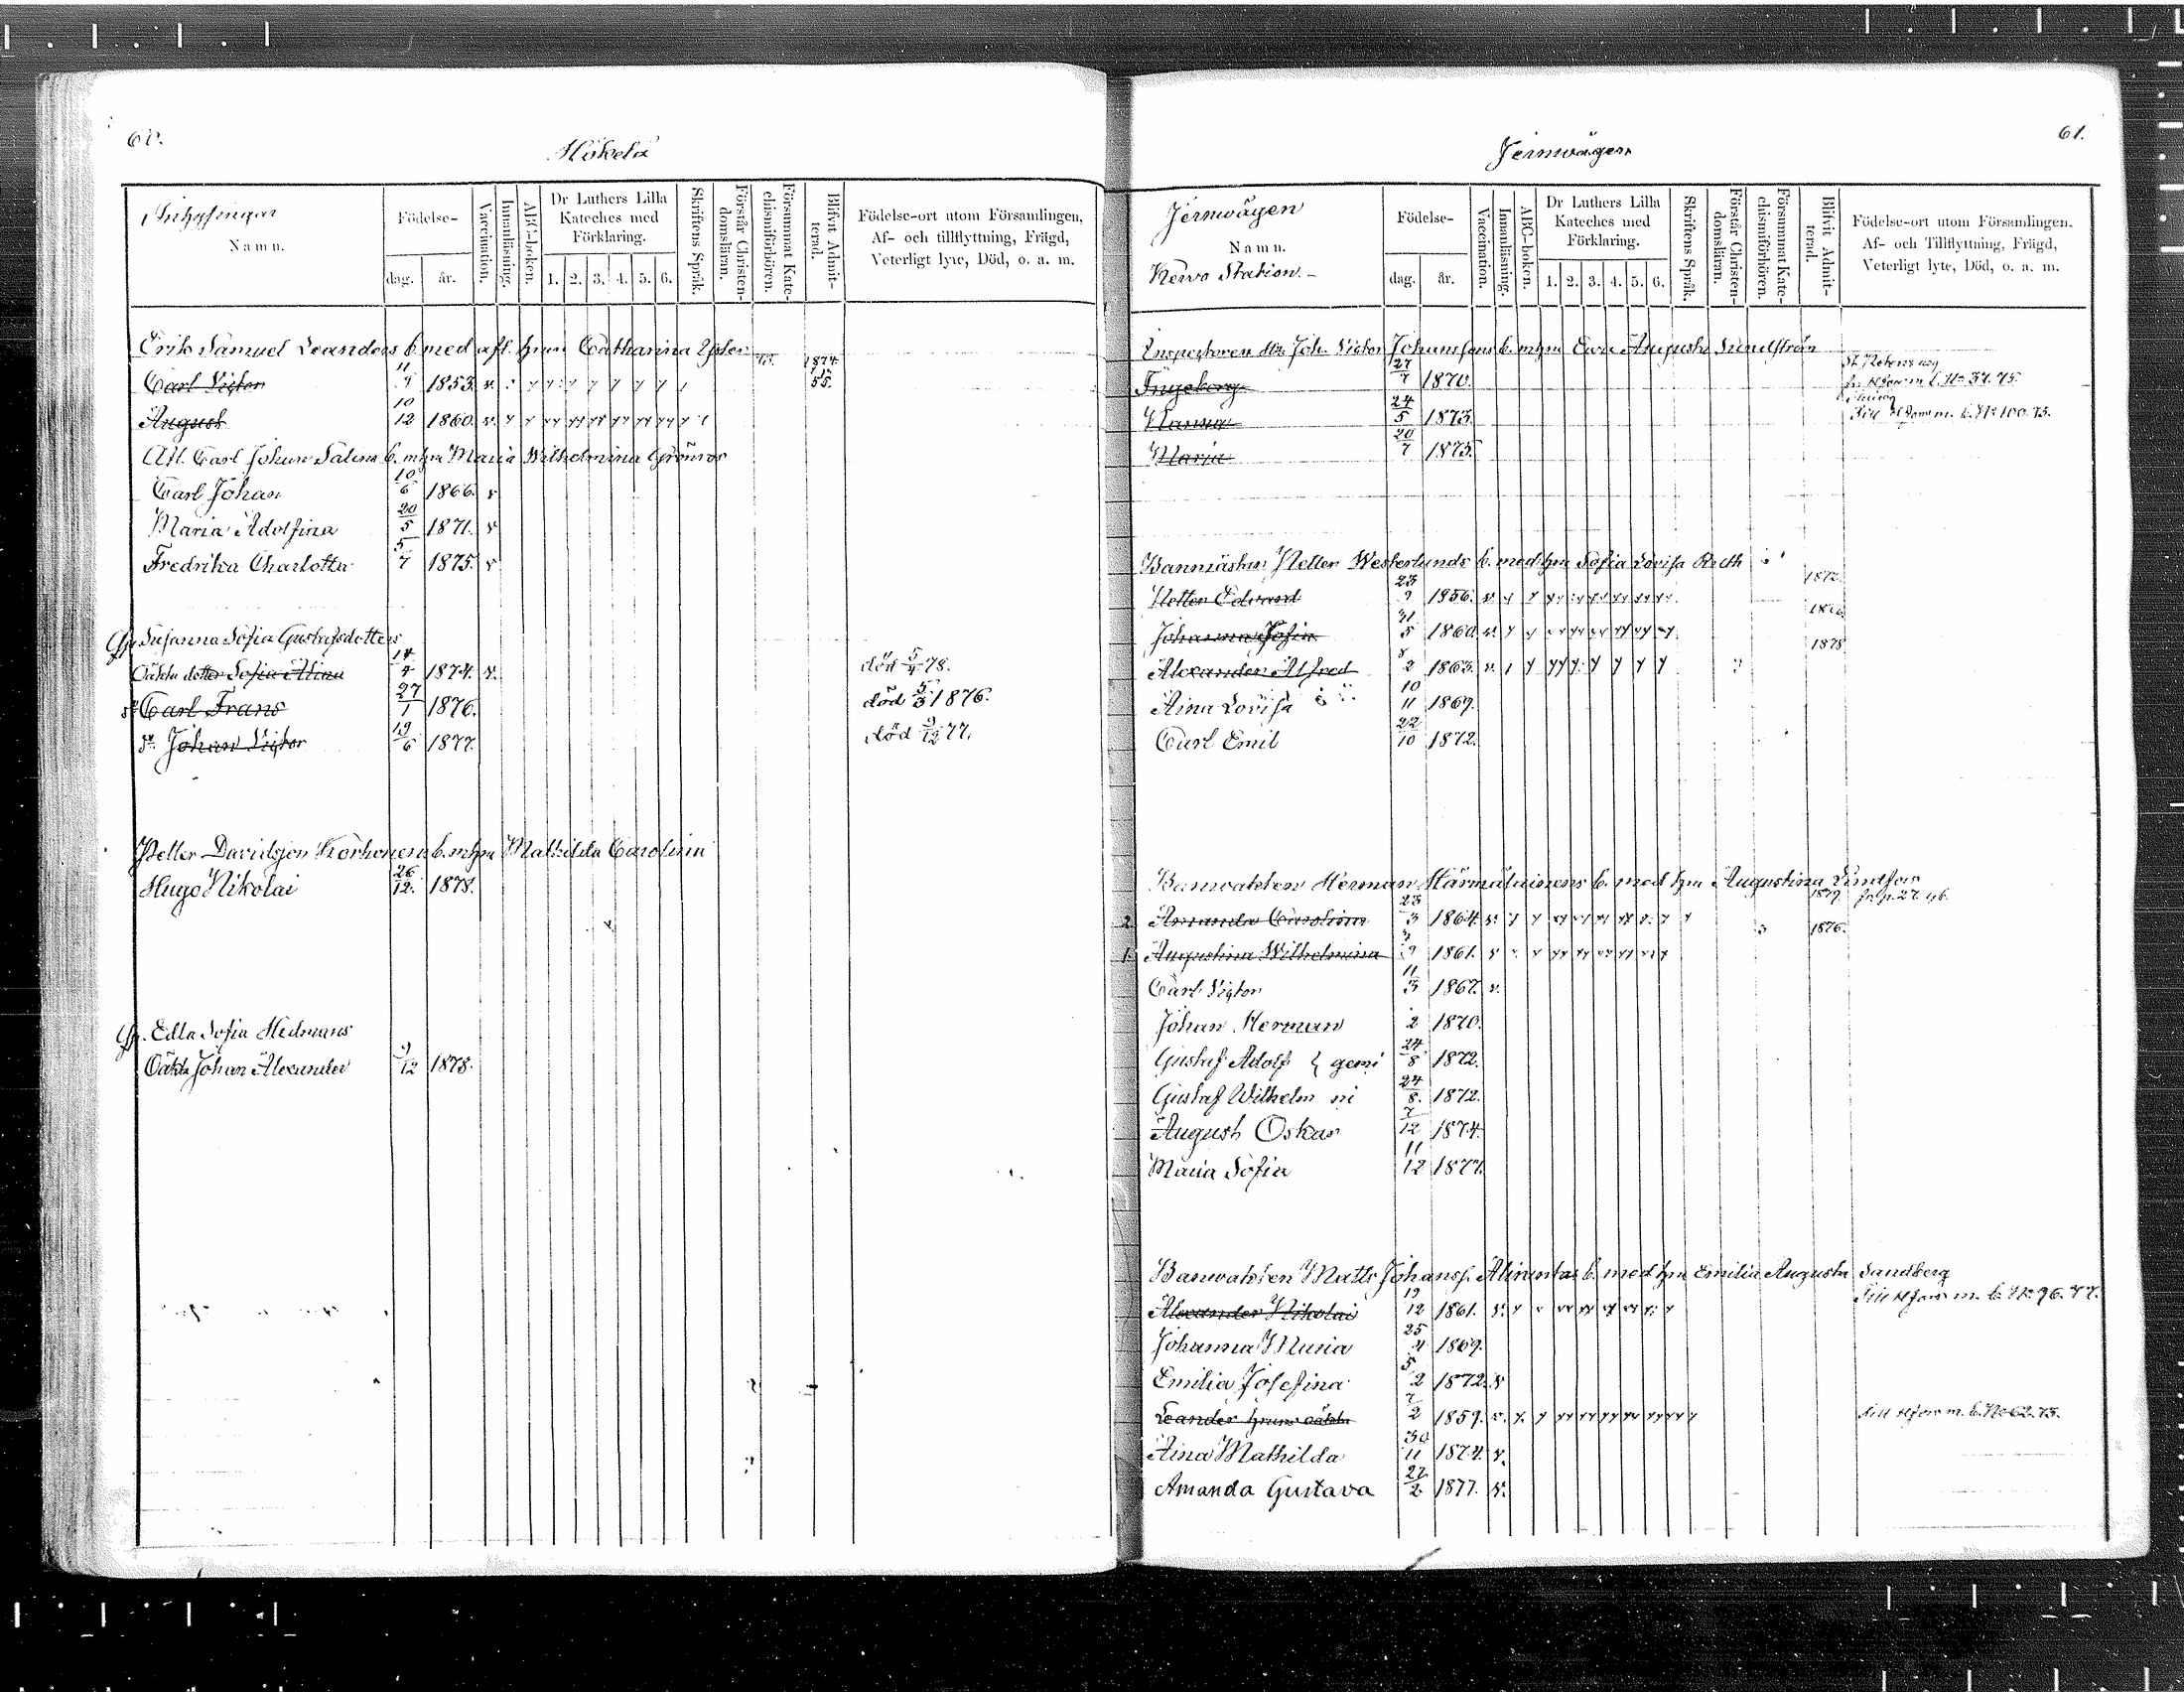 60.
Hökelä
Inhysingar
Namn.
Födelse-
dag.
år.
Vaccination.
Innanläsning.
ABC-boken.
Dr Luthers Lilla
Kateches med
Förklaring.
1. 2. 3. 4. 5. 6.
Skriftens Språk.
Förstår Christen-
domsläran.
Försummat Kate-
chismiförhören.
Blifvit Admit-
terad.
Födelse-ort utom Församlingen,
Af- och tillflyttning, Frägd,
Veterligt lyte, Död, o. a. m.
Erik Samuel Leanders b. med afl. hnn Catharina
Carl Victor 11/9 1853. v. 1874
August 10/12 1860. v.
Afl. Carl Johan Salins b. m hn Maria Wilhelmina Grönros
Carl Johan 10/6 1866. v
Maria Adolfina 20/5 1871. v
Fredrika Charlotta 5/7 1875. v
Susanna Sofia Gustafsdotters
Oäkta dotter Sofia Alina 14/4 1874. v. död 5/4 78.
Carl Frans 27/1 1876. död 5/3 1876.
Johan Victor 19/6 1877. död 9/12 77.
Petter Davidsson Korhonens b. m hn Mathilda Carolina
Hugo Nikolai 26/12. 1878.
Edla Sofia Hedmans
Oäkta Johan Alexander 9/12 1878.
61.
Jernvägen
Jernvägen
Namn.
Kervo Station.
Födelse-
dag.
år.
Vaccination.
Innanläsning.
ABC-boken.
Dr Luthers Lilla
Kateches med
Förklaring.
1. 2. 3. 4. 5. 6.
Skriftens Språk.
Förstår Christen-
domsläran.
Försummat Kate-
chismiförhören.
Blifvit Admit-
terad.
Födelse-ort utom Församlingen,
Af- och Tillflyttning, Frägd,
Veterligt lyte, Död, o. a. m.
Inspectoren Joh. Victor Johanssons b. m hn Eva Augusta Sundström
Ingeborg 27/7 1870.
Hanna 24/5 1873. m. b. No 100. 75.
Maria 20/7 1875.
Banmästar Petter Westerlunds b. med hn Sofia Lovisa Ruth
Petter Edvard 23/9 1856. v. 1872
Johanna Sofia 31/5 1860. v. 1876
Alexander Alfred 8/2 1863. v. 1878
Aina Lovisa 10/11 1869.
Carl Emil 22/10 1872.
Banvakten Herman Härmäläinens b. med hn Augustina Lindfors
2. Amanda Carolina 23/3 1864. v. 1879.
1. Augustina Wilhelmina 3/9 1861. v 1876.
Carl Victor 11/3 1867. v.
Johan Herman 2 1870.
Gustaf Adolf } gemi 24/8 1872.
Gustaf Wilhelm ni 24/8. 1872.
August Oskar 7/12 1874.
Maria Sofia 11/12 1877.
Banvakten Matts Johanss. b. med hn Emilia Augusta Sandberg
Alexander Nikolai 19/12 1861. v. m. b. No 96. 77.
Johanna Maria 25/4 1869.
Emilia Josefina 5/2 1872. v
Leander hnns oäkta 7/2 1859. v. m. b. No 62. 75.
Aina Mathilda 30/11 1874. v.
Amanda Gustava 27/2 1877. v.